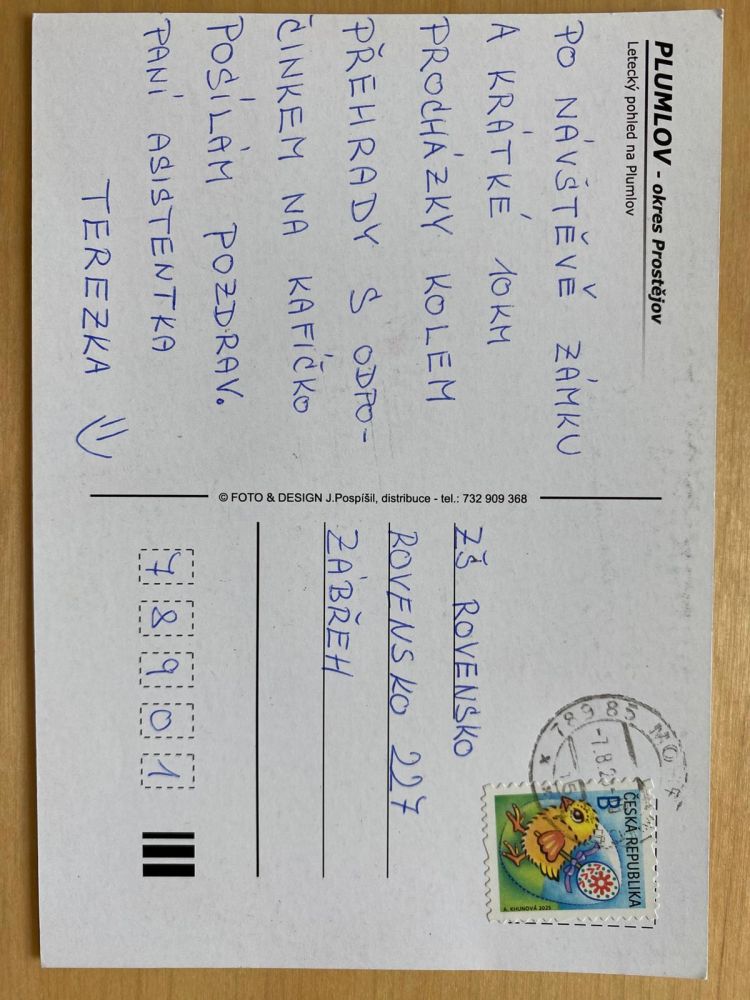 PLUMLOV - okres Prostějov
Letecký pohled na Plumlov
PO NÁVŠTĚVĚ ZÁMKU
A KRÁTKÉ 10KM
PROCHÁZKY KOLEM
PŘEHRADY S ODPO-
ČINKEM NA KAFÍČKO
POSÍLÁM POZDRAV.
PANÍ ASISTENTKA
TEREZKA
© FOTO & DESIGN J.Pospíšil, distribuce - tel.: 732 909 368
789 85
-7.8.2
ČESKÁ REPUBLIKA
B
A. KHUNOVÁ 2025
ZŠ ROVENSKO
ROVENSKO 227
ZÁBŘEH
78901